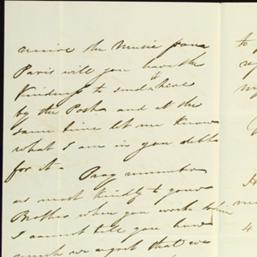 arrive the Music from
Paris will you have the
Kindness to send it here
by the Post and at the
same time let me know
what I am in your debt
for it. Pray remember
us most Kindly to your
Brother when you write to him
I cannot tell you how
much we regret that we
to
my